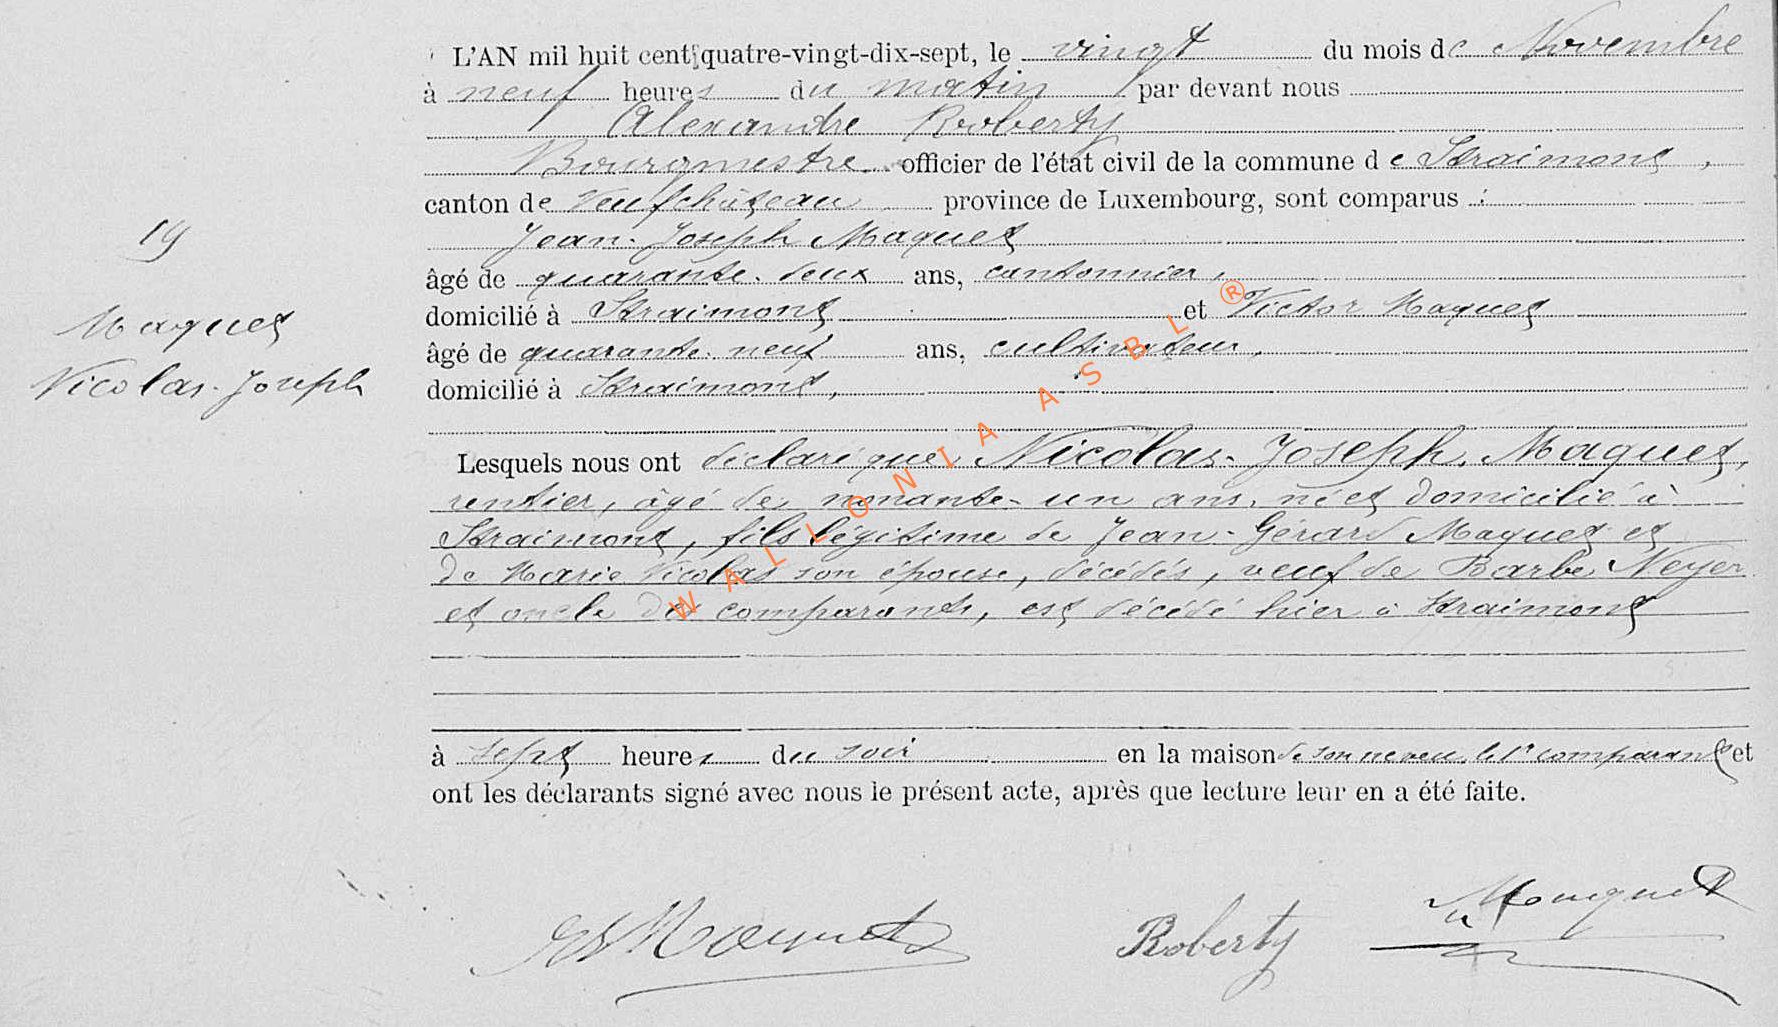 L'AN mil huit cent quatre-vingt-dix-sept, le vingt du mois de Novembre
à neuf heures du matin par devant nous
Alexandre Roberty
Bourgmestre officier de l'état civil de la commune de Straimont,
canton de Neufchâteau province de Luxembourg, sont comparus :
Jean-Joseph Maquet
âgé de quarante-deux ans, cantonnier,
domicilié à Straimont et Victor Maquet
âgé de quarante-neuf ans, cultivateur,
domicilié à Straimont,
19
Maquet
Nicolas-Joseph
Lesquels nous ont déclaré que Nicolas-Joseph Maquet,
rentier, âgé de nonante-un ans, né et domicilié à
Straimont, fils légitime de Jean-Gérard Maquet et
de Marie Nicolas son épouse, décédés, veuf de Barbe Neyer
et oncle des comparants, est décédé hier à Straimont
à sept heures du soir en la maison de son neveu le 1r comparant et
ont les déclarants signé avec nous le présent acte, après que lecture leur en a été faite.
Maquet Roberty Maquet
WALLONIA ASBL ®